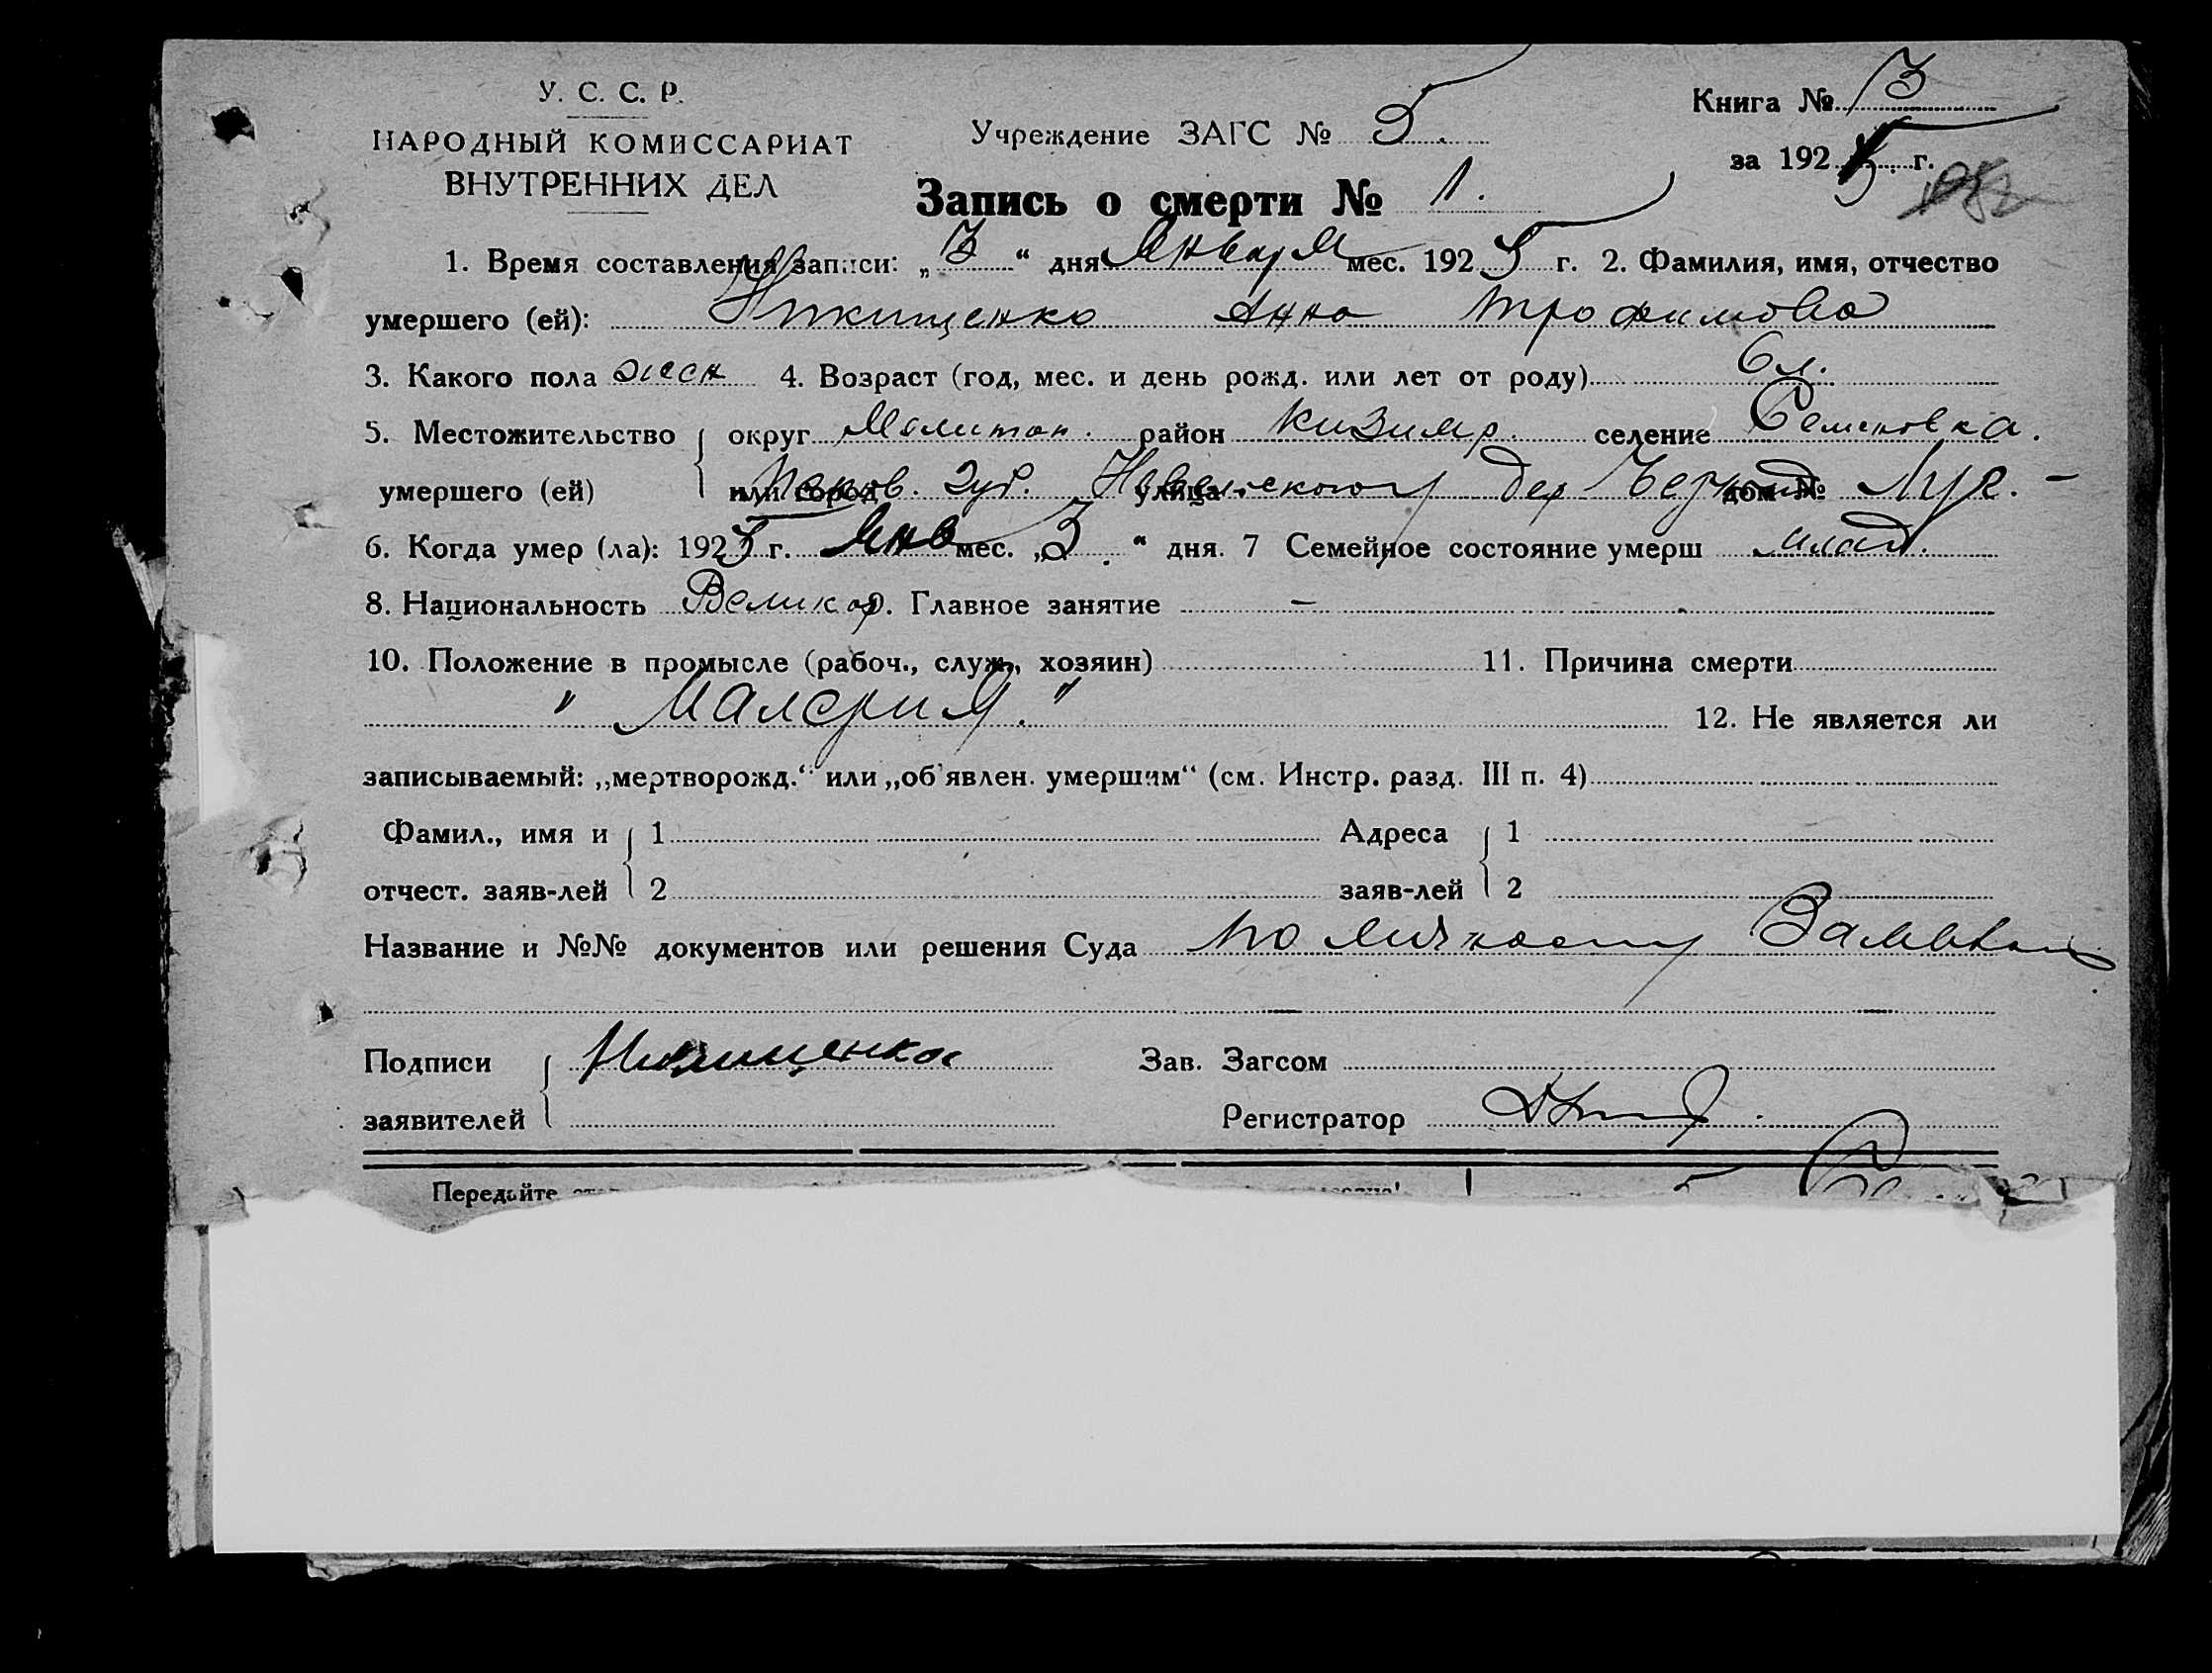 У. С. С. Р.
НАРОДНЫЙ КОМИССАРИАТ
ВНУТРЕННИХ ДЕЛ
Учреждение ЗАГС № 5.
Книга № 3
за 1925 г.
Запись о смерти № 1.
1. Время составления записи: „3“ дня Января мес. 1925 г. 2. Фамилия, имя, отчество
умершего (ей): Никищенко Анна Трофимова
3. Какого пола жен 4. Возраст (год, мес. и день рожд. или лет от роду) 6 л.
5. Местожительство округ Мелитоп. район Кизияр. селение Семеновка.
умершего (ей) или город Псков. губ. улица Невельского у дер дом №
6. Когда умер (ла): 1925 г. Янв мес. „3“ дня. 7 Семейное состояние умерш млад.
8. Национальность Великор. Главное занятие –
10. Положение в промысле (рабоч., служ., хозяин) 11. Причина смерти
" Малерия. " 12. Не является ли
записываемый: „мертворожд.“ или „об'явлен. умершим“ (см. Инстр. разд. III п. 4)
Фамил., имя и 1 Адреса 1
отчест. заяв-лей 2 заяв-лей 2
Название и №№ документов или решения Суда По личному
Подписи Никищенко Зав. Загсом
заявителей Регистратор
Передайте